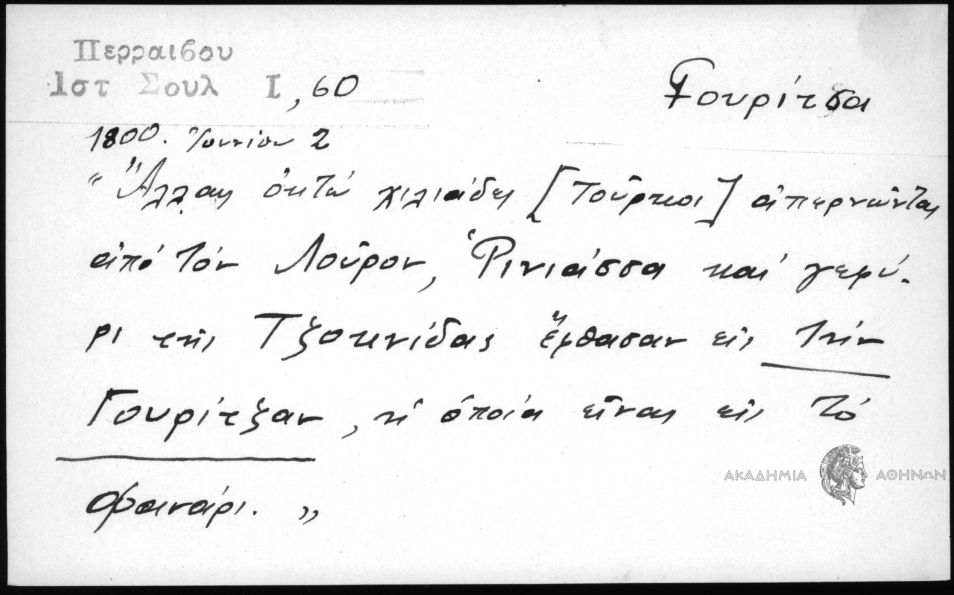 Περραιβου
Ιστ Σουλ Ι, 60
Γουρίτσα
1800. Ἰουνίου 2
"Ἄλλαι ὀκτώ χιλιάδες [Τοῦρκοι] ἀπερνῶντας
ἀπό τόν Λοῦρον, Ῥινιάσσα καί γεφύ-
ρι τῆς Τζοκνίδας ἔφθασαν εἰς τήν
Γουρίτζαν, ἡ ὁποία εἶναι εἰς τό
Φανάρι."
ΑΚΑΔΗΜΙΑ ΑΘΗΝΩΝ